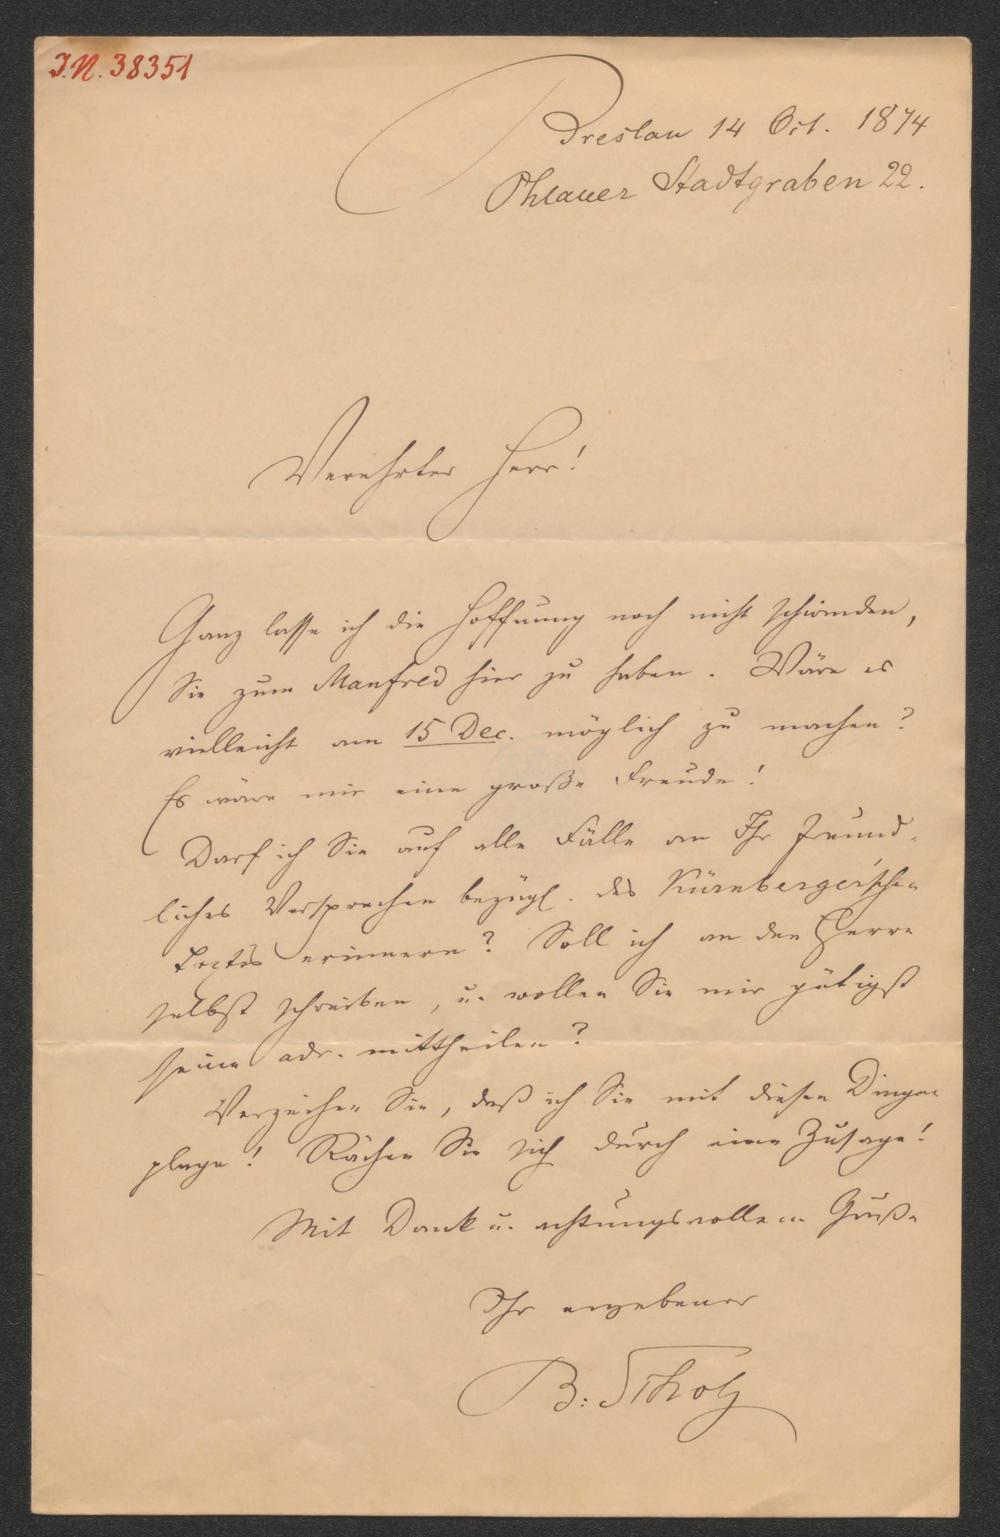 I.N. 38351
Breslau 14 Oct. 1874
Ohlauer Stadtgraben 22.
Verehrter Herr!
Ganz lasse ich die Hoffnung noch nicht schwinden,
Sie zum Manfred hier zu haben. Wäre es
vielleicht am 15 Dec. möglich zu machen?
Es wäre mir eine große Freude!
Darf ich Sie auf alle Fälle an Ihr freund-
liches Versprechen bezügl. des Kürnberger'schen
Textes erinnern? Soll ich an den Herrn
selbst schreiben, u. wollen Sie mir gütigst
seine adr. mittheilen?
Verzeihen Sie, daß ich Sie mit diesen Dingen
plage! Rächen Sie sich durch eine Zusage!
Mit Dank u. achtungsvollem Gruße
Ihr ergebener
B: Scholz